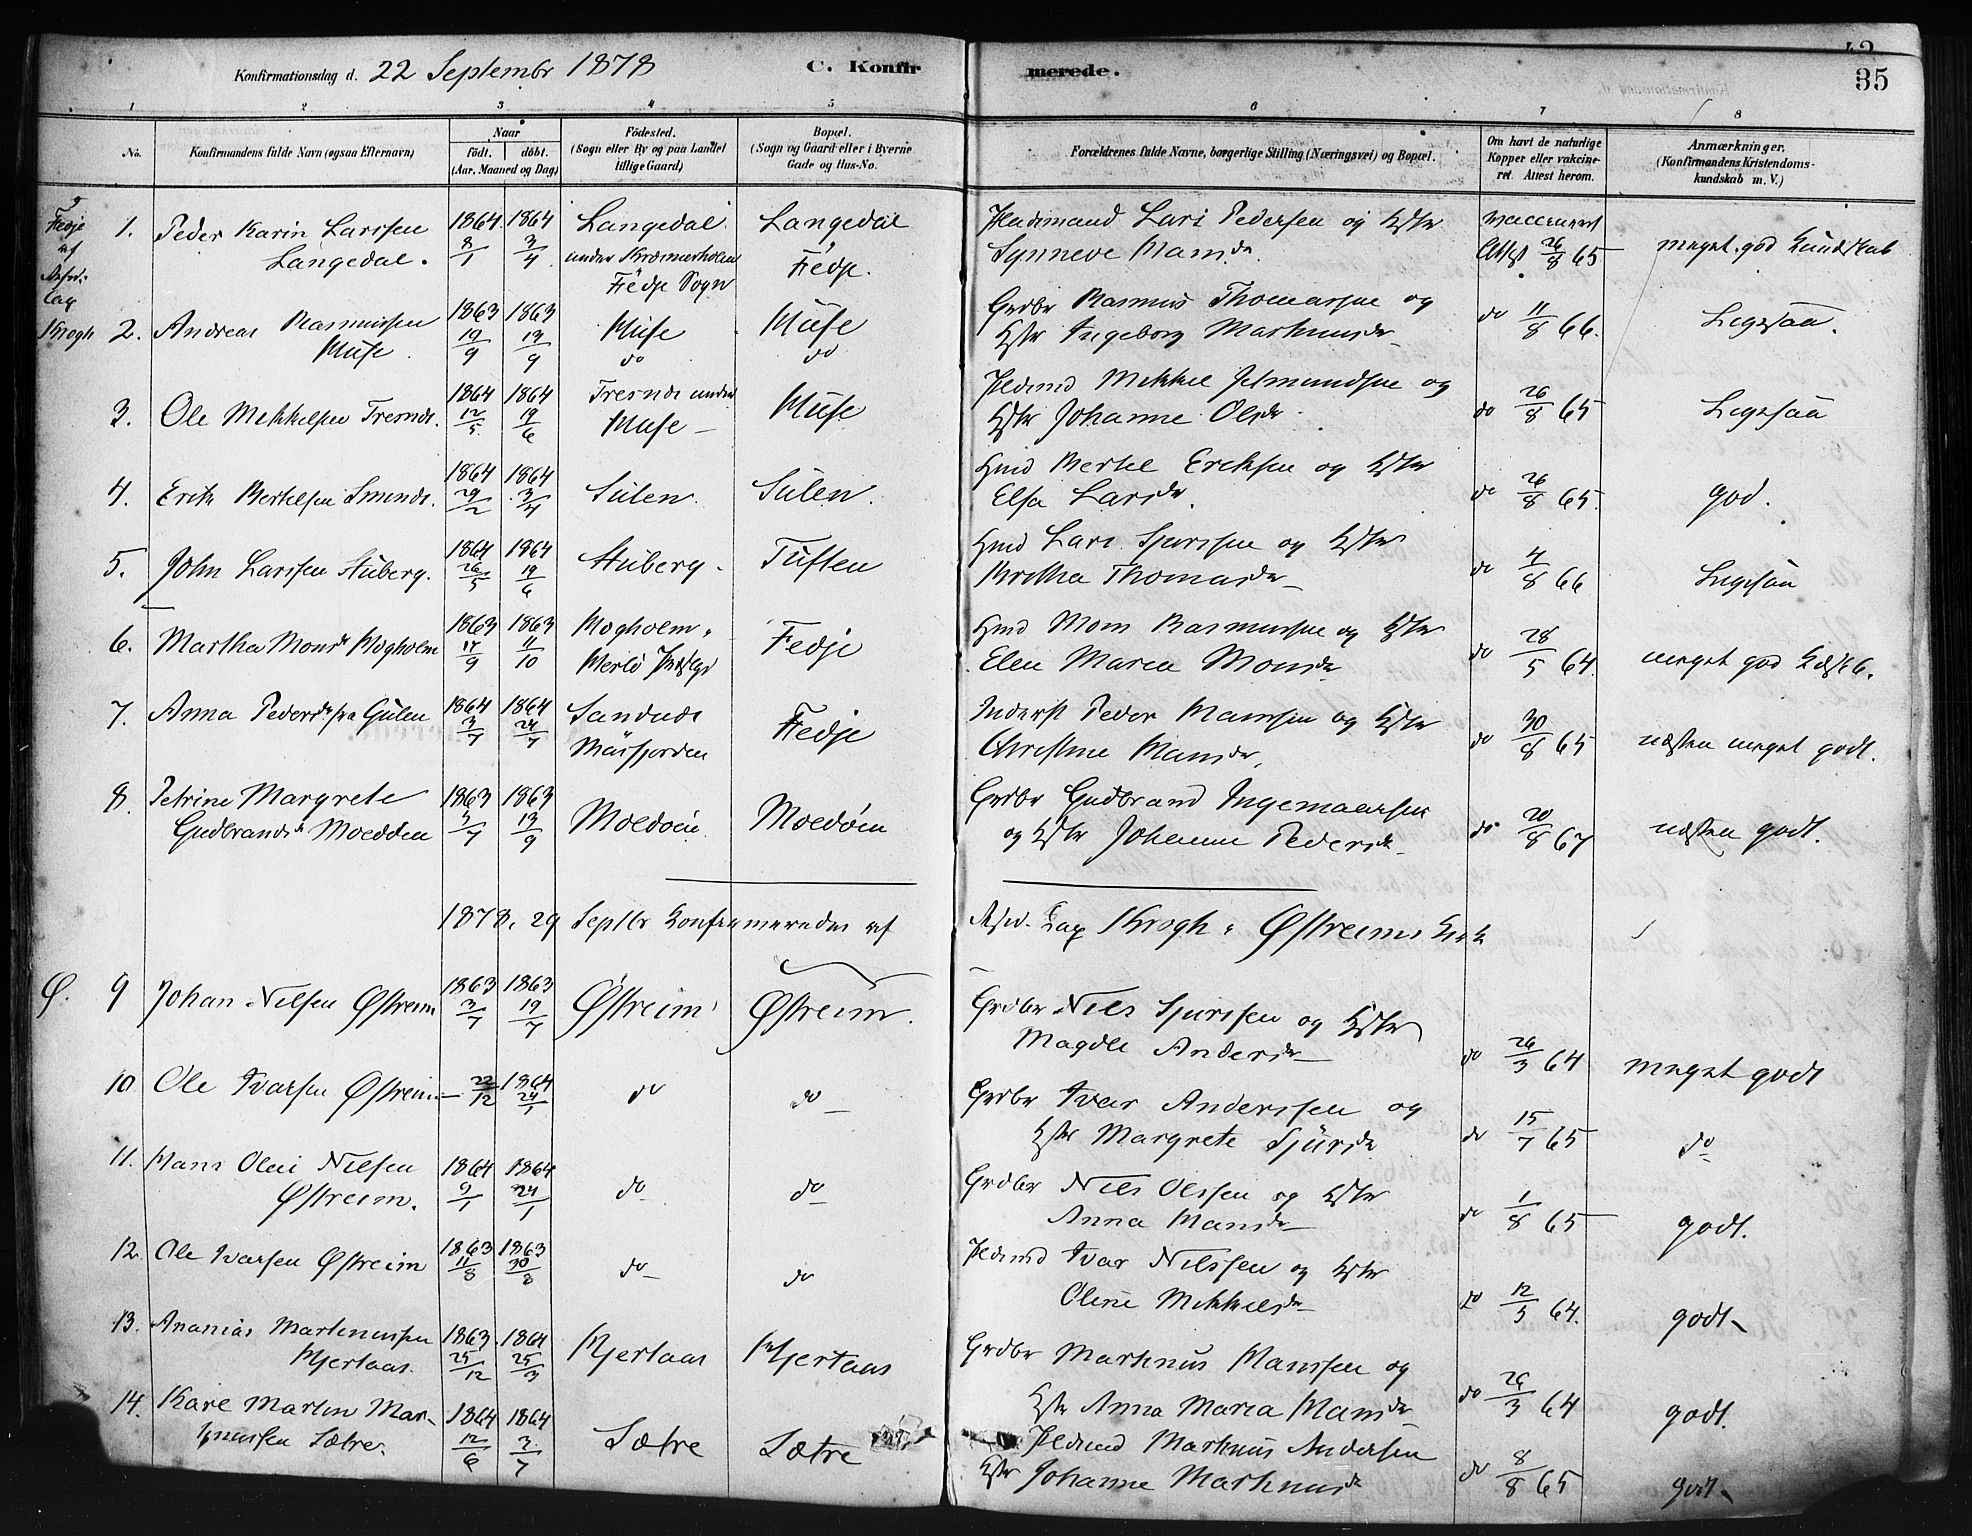 Konfirmationsdag d. 22 Septembr 1878
C. Konfirmerede.
35
1 2 3 4 5 6 7 8
No.
Konfirmandens fulde Navn (ogsaa Efternavn)
Naar
født. døbt.
(Aar, Maaned og Dag)
Fødested.
(Sogn eller By og paa Landet
tillige Gaard)
Bopæl.
(Sogn og Gaard eller i Byerne
Gade og Hus-No.
Forældrenes fulde Navne, borgerlige Stilling (Næringsvei) og Bopæl.
Om havt de naturlige
Kopper eller vakcine-
ret. Attest herom.
Anmærkninger.
(Konfirmandens Kristendoms-
kundskab m. V.)
Fedje
af
Krogh
1. Peder Karin Larssen
Langedal.
1864 8/1 1864 3/4
Langedal
under Kræmmerholm
Fedje Sogn
Langedal
Fedje.
Pladsmand Lars Pedersen og Hstr
Synneve Hansdr.
vaccineret
Attest 26/8 65
meget god Kundskab
2. Andreas Rasmussen
Huse.
1863 19/9 1863 19/9
Huse
do
Huse
do
Grdbr Rasmus Thomassen og
Hstr Ingeborg Markusdr
do 11/8 66.
Ligesaa.
3. Ole Mikkelsen Tresnes.
1864 12/5 1864 19/6
Tresnes under
Huse
Huse
Mikkel Jetmundsen og
Hstr Johanne Olsdr
do 26/8 65
Ligesaa
4. Erik Bertelsen
1864 29/2 1864 3/4
Sulen.
Sulen.
Hmd Bertel Eriksen og Hstr
Elsa Larsdr.
do 26/8 65.
god.
5. John Larssen Stuberg.
1864 26/5 1864 19/6
Stuberg.
Tuften
Hmd Lars Sjurssen og Hstr
Britha Thomasdr
do 4/8 66
Ligesaa
6. Martha Monsdr Mogholm
1863 17/9 1863 11/10
Mogholm
Fedje
Hmd Mons Rasmussen og Hstr
Elen Maria Monsdr
do 28/5 64.
meget god
7. Anna Pedersdr fra Gulen
1864 3/7 1864 24/7
Sandnes
Masfjorden
Fedje
Inderst Peder Hanssen og Hstr
Christine Hansdr.
do 30/8 65
næsten meget godt.
8. Petrine Margrete
Gudbrandsdr Moldøen
1863 5/7 1863 13/9
Moldøen
Moldøen
Grdbr Gudbrand Ingemaarsen
og Hstr Johanne Pedersdr
do 20/8 67
næsten godt.
1878. 29 Septbr Konfirmeredes af
Resid. Cap Krogh i Østreims Kirke
Ø. 9 Johan Nilsen Østreim
1863 3/7 1863 19/7
Østreim
Østreim.
Grdbr Nils Sjurssen og Hstr
Magdle Andersdr
do 26/3 64
meget godt
10 Ole Ivarsen Østreim
22/12 1864 24/1
do
do
Grdbr Ivar Anderssen og
Hstr Margrete Sjursdr
do 15/7 65
do
11. Hans Olai Nilsen
Østreim.
1864 9/1 1864 24/1
do
do
Grdbr Nils Olssen og Hstr
Anna Hansdr
do 1/8 65
godt.
12. Ole Ivarsen Østreim
1863 11/8 1863 30/8
do
do
Plmand Ivar Nilssen og Hstr
Oline Mikkelsdr
do 12/5 64.
godt.
13. Ananias Martinussen
Kjertaas.
1863 25/12 1864 25/3
Kjertaas
Kjertaas
Grdbr Martinus Hanssen og
Hstr Anna Maria Hansdr
do 26/3 64
godt.
14. Karl Martin Mar-
tinussen Sætre.
1864 12/6 1864 3/7
Sætre
Sætre
Plmand Martinus Andersen
Hstr Johanne Martinusdr
do 8/8 65
godt.